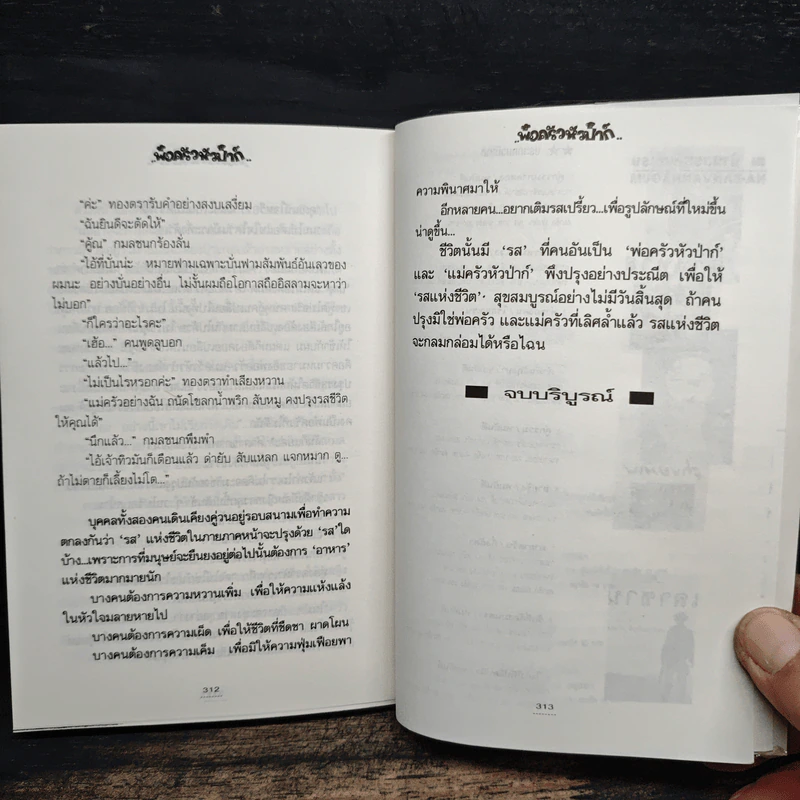 ..พ่อครัวหัวป่าก์..
“ค่ะ” ทองตรารับคำอย่างสงบเสงี่ยม
“ฉันยินดีจะตัดให้”
“คู้ณ” กมลชนกร้องลั่น
“ไอ้ที่บั่นน่ะ หมายฟามเฉพาะบั่นฟามสัมพันธ์อันเลวของ
ผมนะ อย่าบั่นอย่างอื่น ไม่งั้นผมถือโอกาสถืออิสลามจะหาว่า
ไม่บอก”
“ก็ใครว่าอะไรคะ”
“เฮ้อ...” คนพูดลูบอก
“แล้วไป...”
“ไม่เป็นไรหรอกค่ะ” ทองตราทำเสียงหวาน
“แม่ครัวอย่างฉัน ถนัดโขลกน้ำพริก สับหมู คงปรุงรสชีวิต
ให้คุณได้”
“นึกแล้ว...” กมลชนกพึมพำ
“ไอ้เจ้าทิวมันก็เตือนแล้ว ด่ายับ สับแหลก แจกหมาก ตู...
ถ้าไม่ตายก็เลี้ยงไม่โต...”
บุคคลทั้งสองคนเดินเคียงคู่วนอยู่รอบสนามเพื่อทำความ
ตกลงกันว่า ‘รส’ แห่งชีวิตในภายภาคหน้าจะปรุงด้วย ‘รส’ใด
บ้าง...เพราะการที่มนุษย์จะยืนยงอยู่ต่อไปนั้นต้องการ ‘อาหาร’
แห่งชีวิตมากมายนัก
บางคนต้องการความหวานเพิ่ม เพื่อให้ความแห้งแล้ง
ในหัวใจมลายหายไป
บางคนต้องการความเผ็ด เพื่อให้ชีวิตที่ชืดชา ผาดโผน
บางคนต้องการความเค็ม เพื่อมิให้ความฟุ่มเฟือยพา
312
..พ่อครัวหัวป่าก์..
ความพินาศมาให้
อีกหลายคน...อยากเติมรสเปรี้ยว...เพื่อรูปลักษณ์ที่ใหม่ขึ้น
น่าดูขึ้น...
ชีวิตนั้นมี ‘รส’ ที่คนอันเป็น ‘พ่อครัวหัวป่าก์’
และ ‘แม่ครัวหัวป่าก์’ พึงปรุงอย่างประณีต เพื่อให้
‘รสแห่งชีวิต’ สุขสมบูรณ์อย่างไม่มีวันสิ้นสุด ถ้าคน
ปรุงมิใช่พ่อครัว และแม่ครัวที่เลิศล้ำแล้ว รสแห่งชีวิต
จะกลมกล่อมได้หรือไฉน
จบบริบูรณ์
313